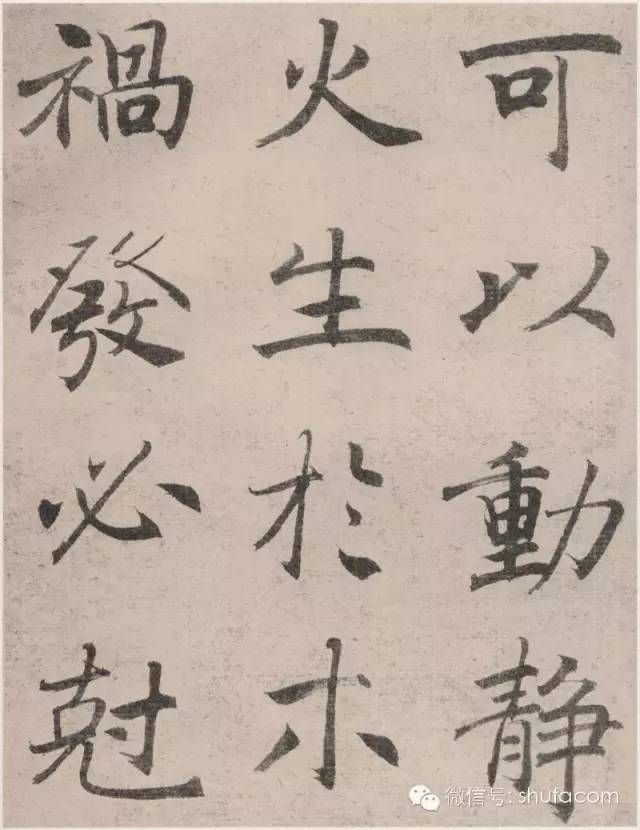 可以動靜
火生於木
禍發必尅
微信号: shufacom